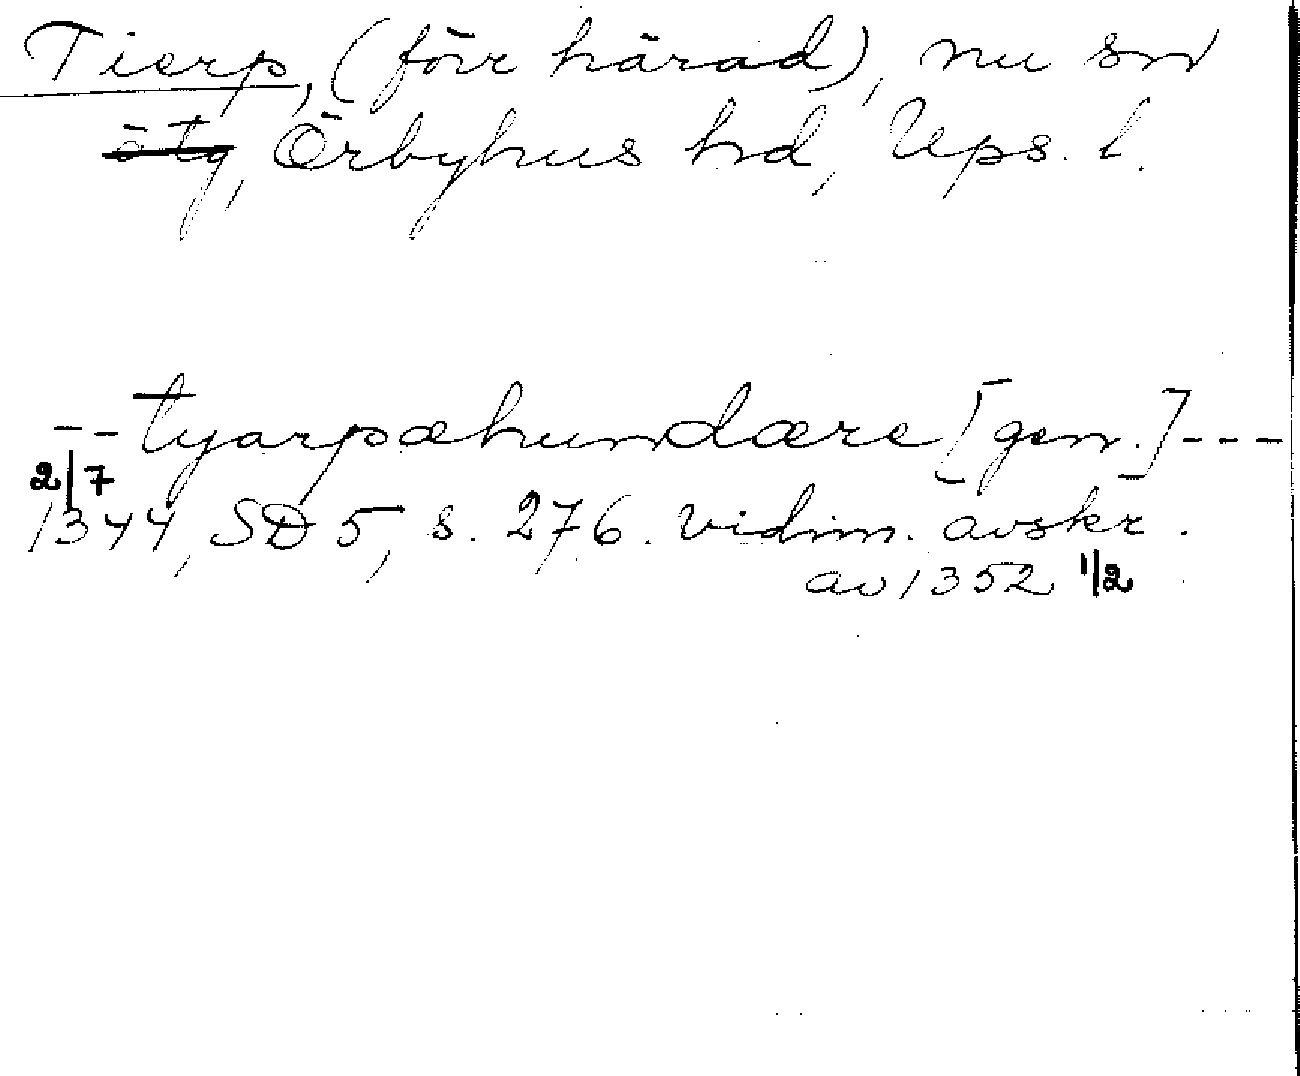 Tierp, (förr härad), nu sn
ötg, Örbyhus hd, Ups. l.
-- tyarpæhundære [gen.] ---
2/7
1344, SD 5, s. 276. vidim. avskr.
av 1352 1/2